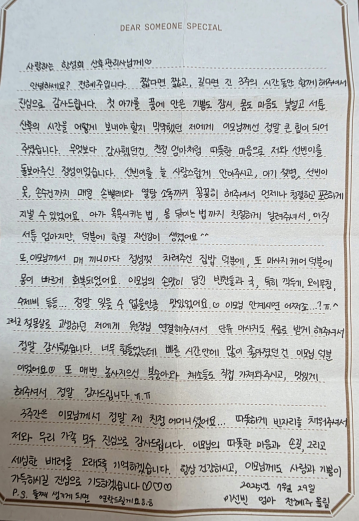 DEAR SOMEONE SPECIAL
사랑하는 한성희 산후관리사님께♡
안녕하세요? 전혜주입니다. 짧다면 짧고, 길다면 긴 3주의 시간동안 함께해주셔서
진심으로 감사드립니다. 첫 아기를 품에 안은 기쁨도 잠시, 몸도 마음도 낯설고 서툰
산후의 시간을 어떻게 보내야 할지 막막했던 저에게 이모님께선 정말 큰 힘이 되어
주셨습니다. 무엇보다 감사했던건, 친정 엄마처럼 따뜻한 마음으로 저와 선빈이를
돌봐주신 정성이었습니다. 선빈이를 늘 사랑스럽게 안아주시고, 아기 젖병, 선빈이
옷, 손수건까지 매일 손빨래와 열탕 소독까지 꼼꼼히 해주셔서 언제나 청결하고 포근하게
지낼 수 있었어요. 아가 목욕시키는 법, 몸 닦이는 법까지 친절하게 알려주셔서, 아직
서툰 엄마지만, 덕분에 한결 자신감이 생겼어요^^
또, 이모님께서 매 끼니마다 정성껏 차려주신 집밥 덕분에, 또 마사지 케어 덕분에
몸이 빠르게 회복되었어요. 이모님의 손맛이 담긴 반찬들과 국, 특히 깍두기, 오이무침,
수제비 등등 정말 잊을 수 없을만큼 맛있었어요☺ 이모님 안계시면 어쩌죠...?ㅠ^
그리고 젖몸살로 고생하던 저에게 원장님 연결해주셔서 단유 마사지도 무료로 받게 해주셔서
정말 감사했습니다. 너무 힘들었는데 빠른 시간안에 많이 좋아졌던건 이모님 덕분
이었어요☺ 또 매번 농사지으신 복숭아와 채소들도 직접 가져와주시고, 맛있게
해주셔서 정말 감사드립니다 ㅠ.ㅠ
3주간은 이모님께서 정말 제 친정 어머니셨어요... 따뜻하게 빈자리를 채워주셔서
저와 우리 가족 모두 진심으로 감사드립니다. 이모님의 따뜻한 마음과 손길, 그리고
세심한 배려를 오래도록 기억하겠습니다. 항상 건강하시고, 이모님께도 사랑과 기쁨이
가득하시길 진심으로 기도하겠습니다♡♡♡
2025년 7월 29일
P.S. 둘째 생기게 되면 연락드릴게요
이선빈 엄마 전혜주 올림